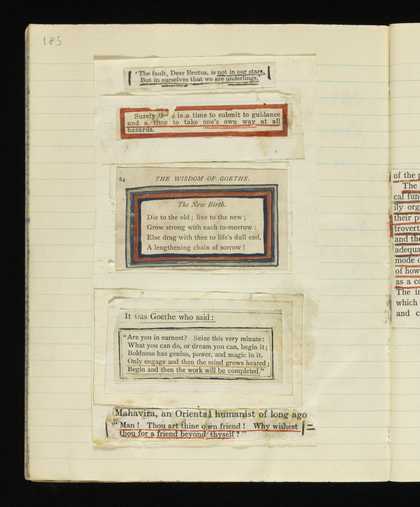 185
"The fault, Dear Brutus, is not in our stars,
But in ourselves that we are underlings."
Surely is a time to submit to guidance
and a time to take one's own way at all
hazards.
84 THE WISDOM OF GOETHE.
The New Birth.
Die to the old; live to the new;
Grow strong with each to-morrow:
Else drag with thee to life's dull end,
A lengthening chain of sorrow!
It was Goethe who said:
"Are you in earnest? Seize this very minute:
What you can do, or dream you can, begin it;
Boldness has genius, power, and magic in it.
Only engage and then the mind grows heated;
Begin and then the work will be completed."
Mahavira, an Oriental humanist of long ago
"Man! Thou art thine own friend! Why wishest
thou for a friend beyond thyself?"
of the p
The
cal fun
ily org
their p
trovert
and the
adequa
mode o
of how
as a co
The in
which
and c